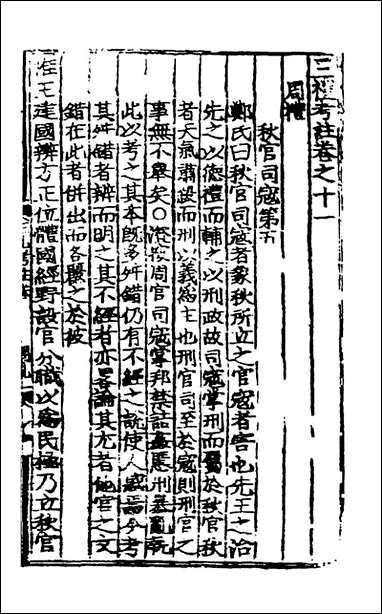 三禮考註卷之十一
周禮
秋官司寇第五
鄭氏曰秋官司寇者象秋所立之官寇者害也先王之治
先之以德禮而輔之以刑政故司寇掌刑而屬於秋官秋
者天氣肅殺而刑以義為主也刑官司至於寇則刑官之
事無不舉矣○澄按周官司寇掌邦禁詰姦慝刑暴亂執
此以考之其本既多舛錯仍有不經之說使人惑焉今考
其舛錯者辨而明之其不經者亦畧論其尤者他官之文
錯在此者併出而各歸之於彼
惟王建國辨方正位體國經野設官分職以為民極乃立秋官